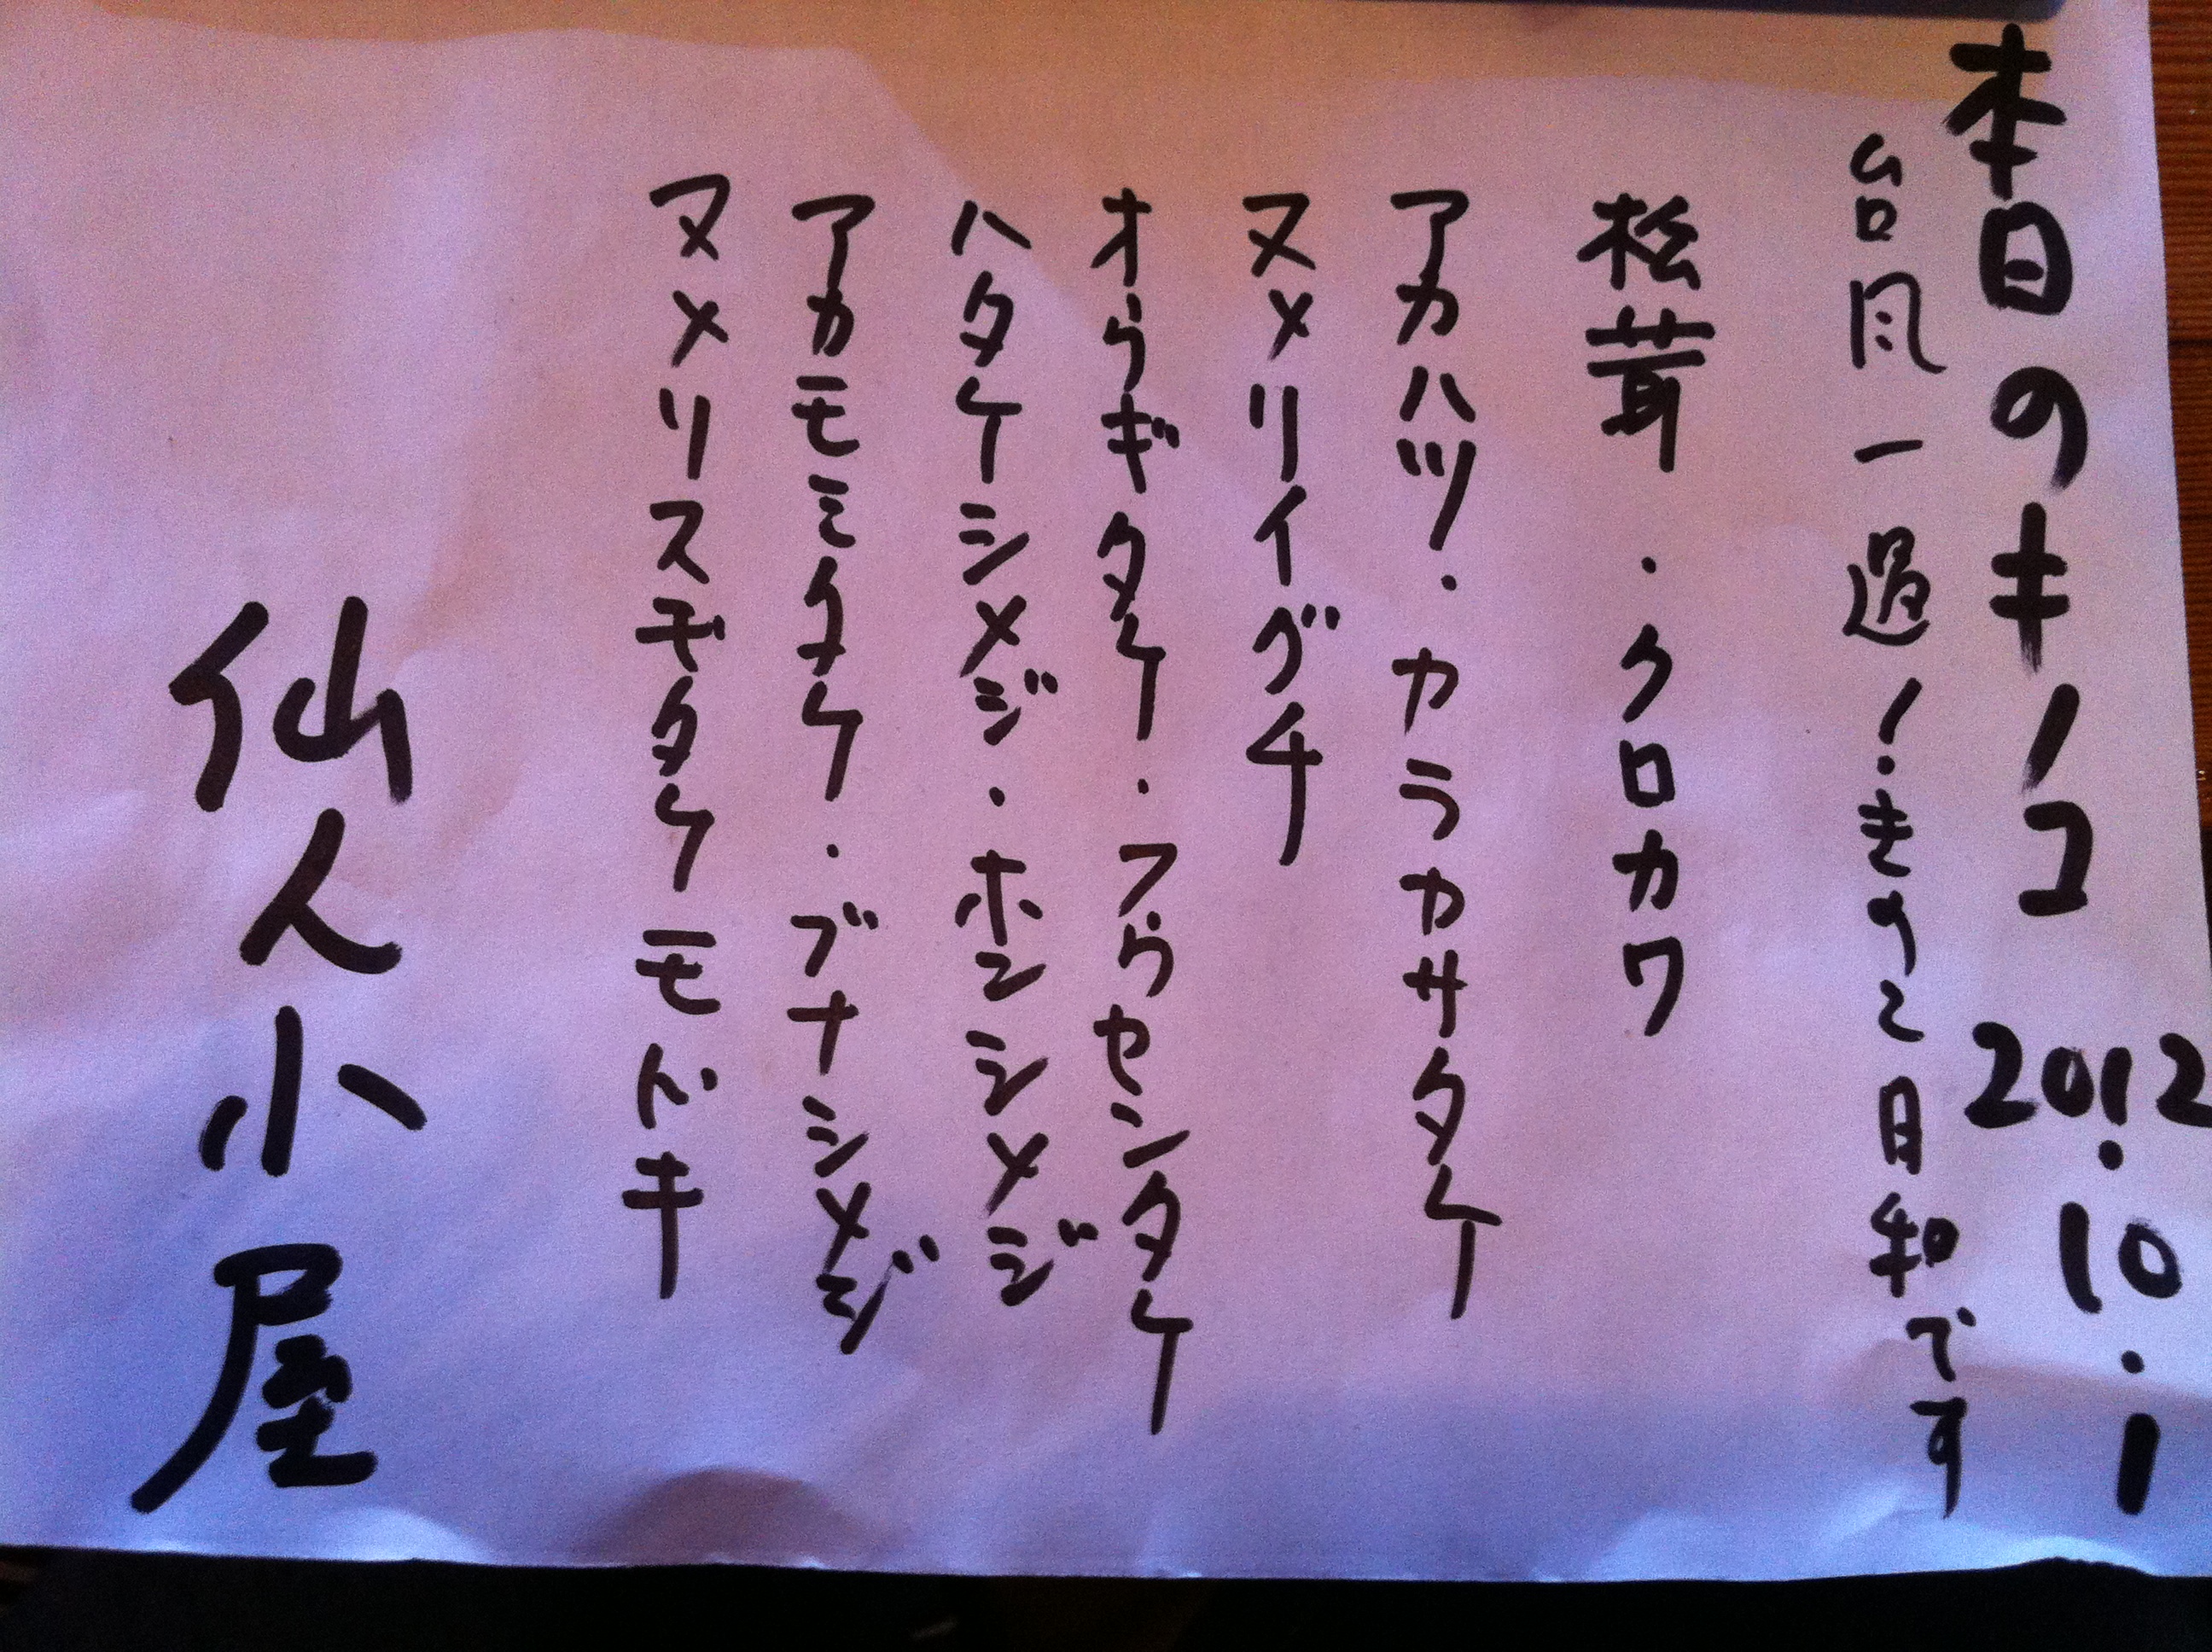 本日のキノコ 2012.10.1
台風一過！きのこ日和です
松茸・クロカワ
アカハツ・カラカサタケ
ヌメリイグチ
オウギタケ・フウセンタケ
ハタケシメジ・ホンシメジ
アカモミタケ・ブナシメジ
ヌメリスギタケモドキ
仙人小屋